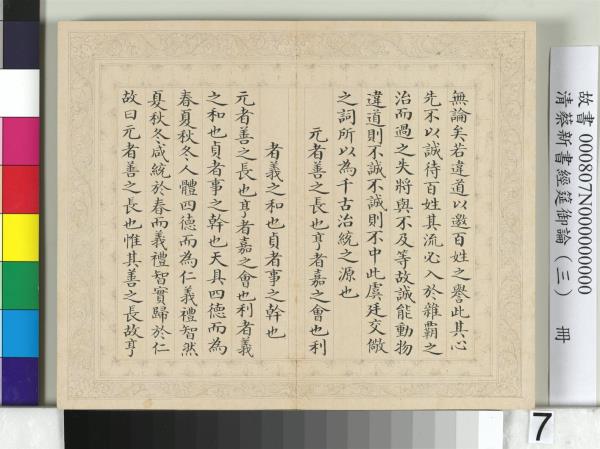 無論矣若違道以邀百姓之譽此其心
先不以誠待百姓其流必入於雜霸之
治而過之失將與不及等故誠能動物
違道則不誠不誠則不中此虞廷交儆
之詞所以為千古治統之源也
元者善之長也亨者嘉之會也利
者義之和也貞者事之幹也
元者善之長也亨者嘉之會也利者義
之和也貞者事之幹也天具四德而為
春夏秋冬人體四德而為仁義禮智然
夏秋冬咸統於春而義禮智實歸於仁
故曰元者善之長也惟其善之長故亨
故書 000807N000000000
清蔡新書經筵御論(三) 冊
7